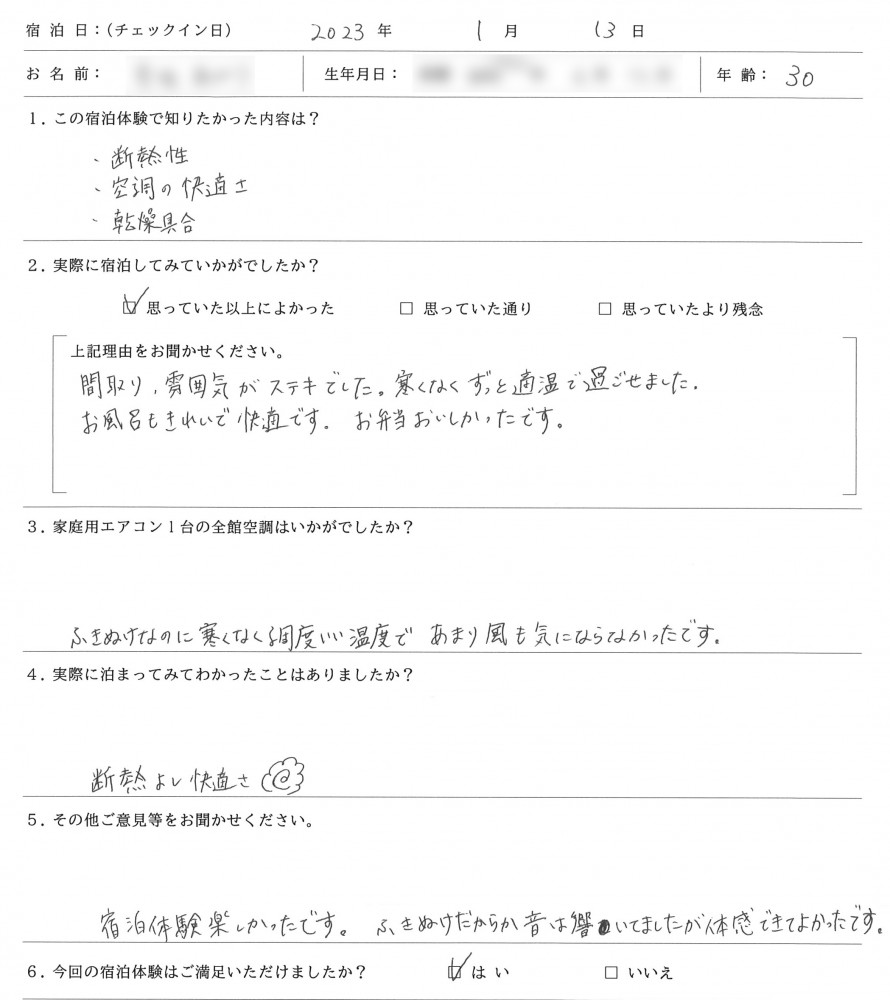 宿 泊 日：（チェックイン日） 2023 年 1 月 13 日
お 名 前： 生年月日： 年 齢： 30
1．この宿泊体験で知りたかった内容は？
・断熱性
・空調の快適さ
・乾燥具合
2．実際に宿泊してみていかがでしたか？
☑ 思っていた以上によかった □ 思っていた通り □ 思っていたより残念
上記理由をお聞かせください。
間取り、雰囲気がステキでした。寒くなくずっと適温で過ごせました。
お風呂もきれいで快適です。お弁当おいしかったです。
3．家庭用エアコン1台の全館空調はいかがでしたか？
ふきぬけなのに寒くなく調度いい温度で あまり風も気にならなかったです。
4．実際に泊まってみてわかったことはありましたか？
断熱よし快適さ
5．その他ご意見等をお聞かせください。
宿泊体験楽しかったです。 ふきぬけだからか音は響いてましたが体感できてよかったです。
6．今回の宿泊体験はご満足いただけましたか？ ☑ は い □ いいえ